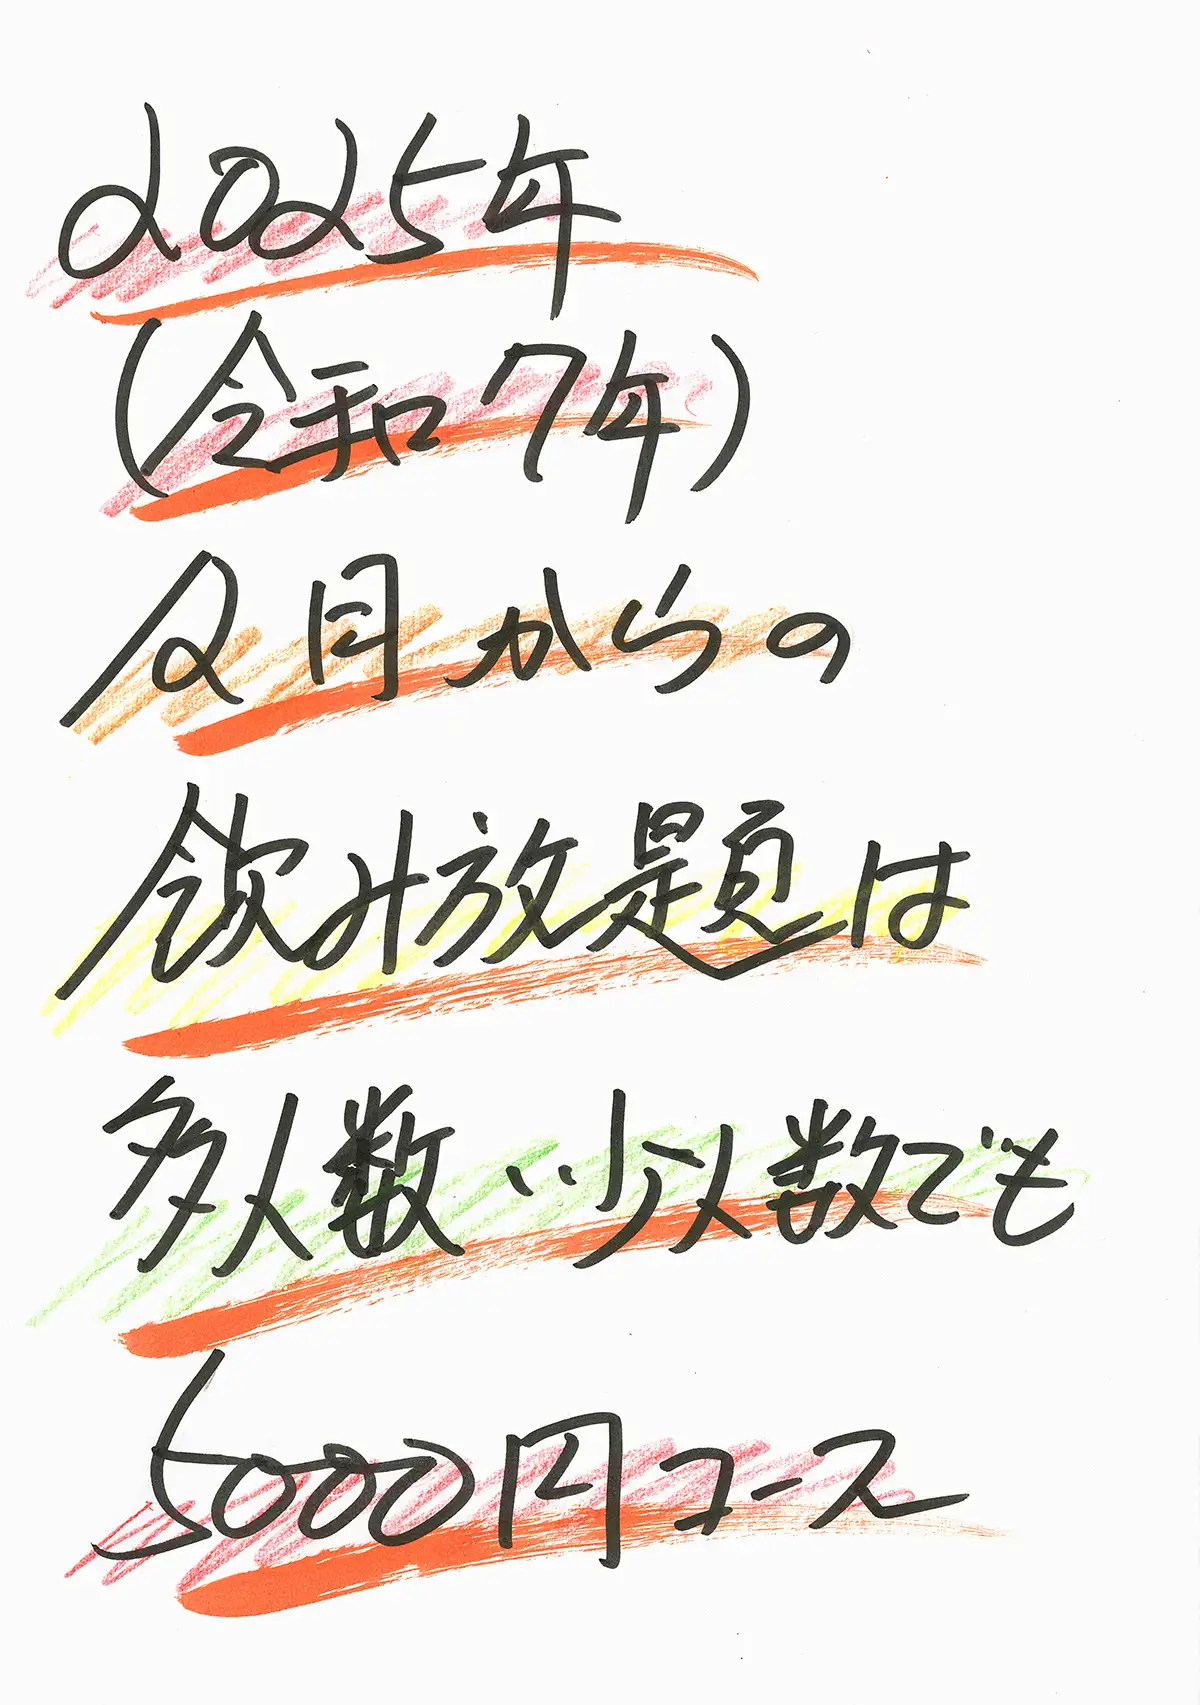 2025年
(令和7年)
2月からの
飲み放題は
多人数‥少人数でも
5000円コース